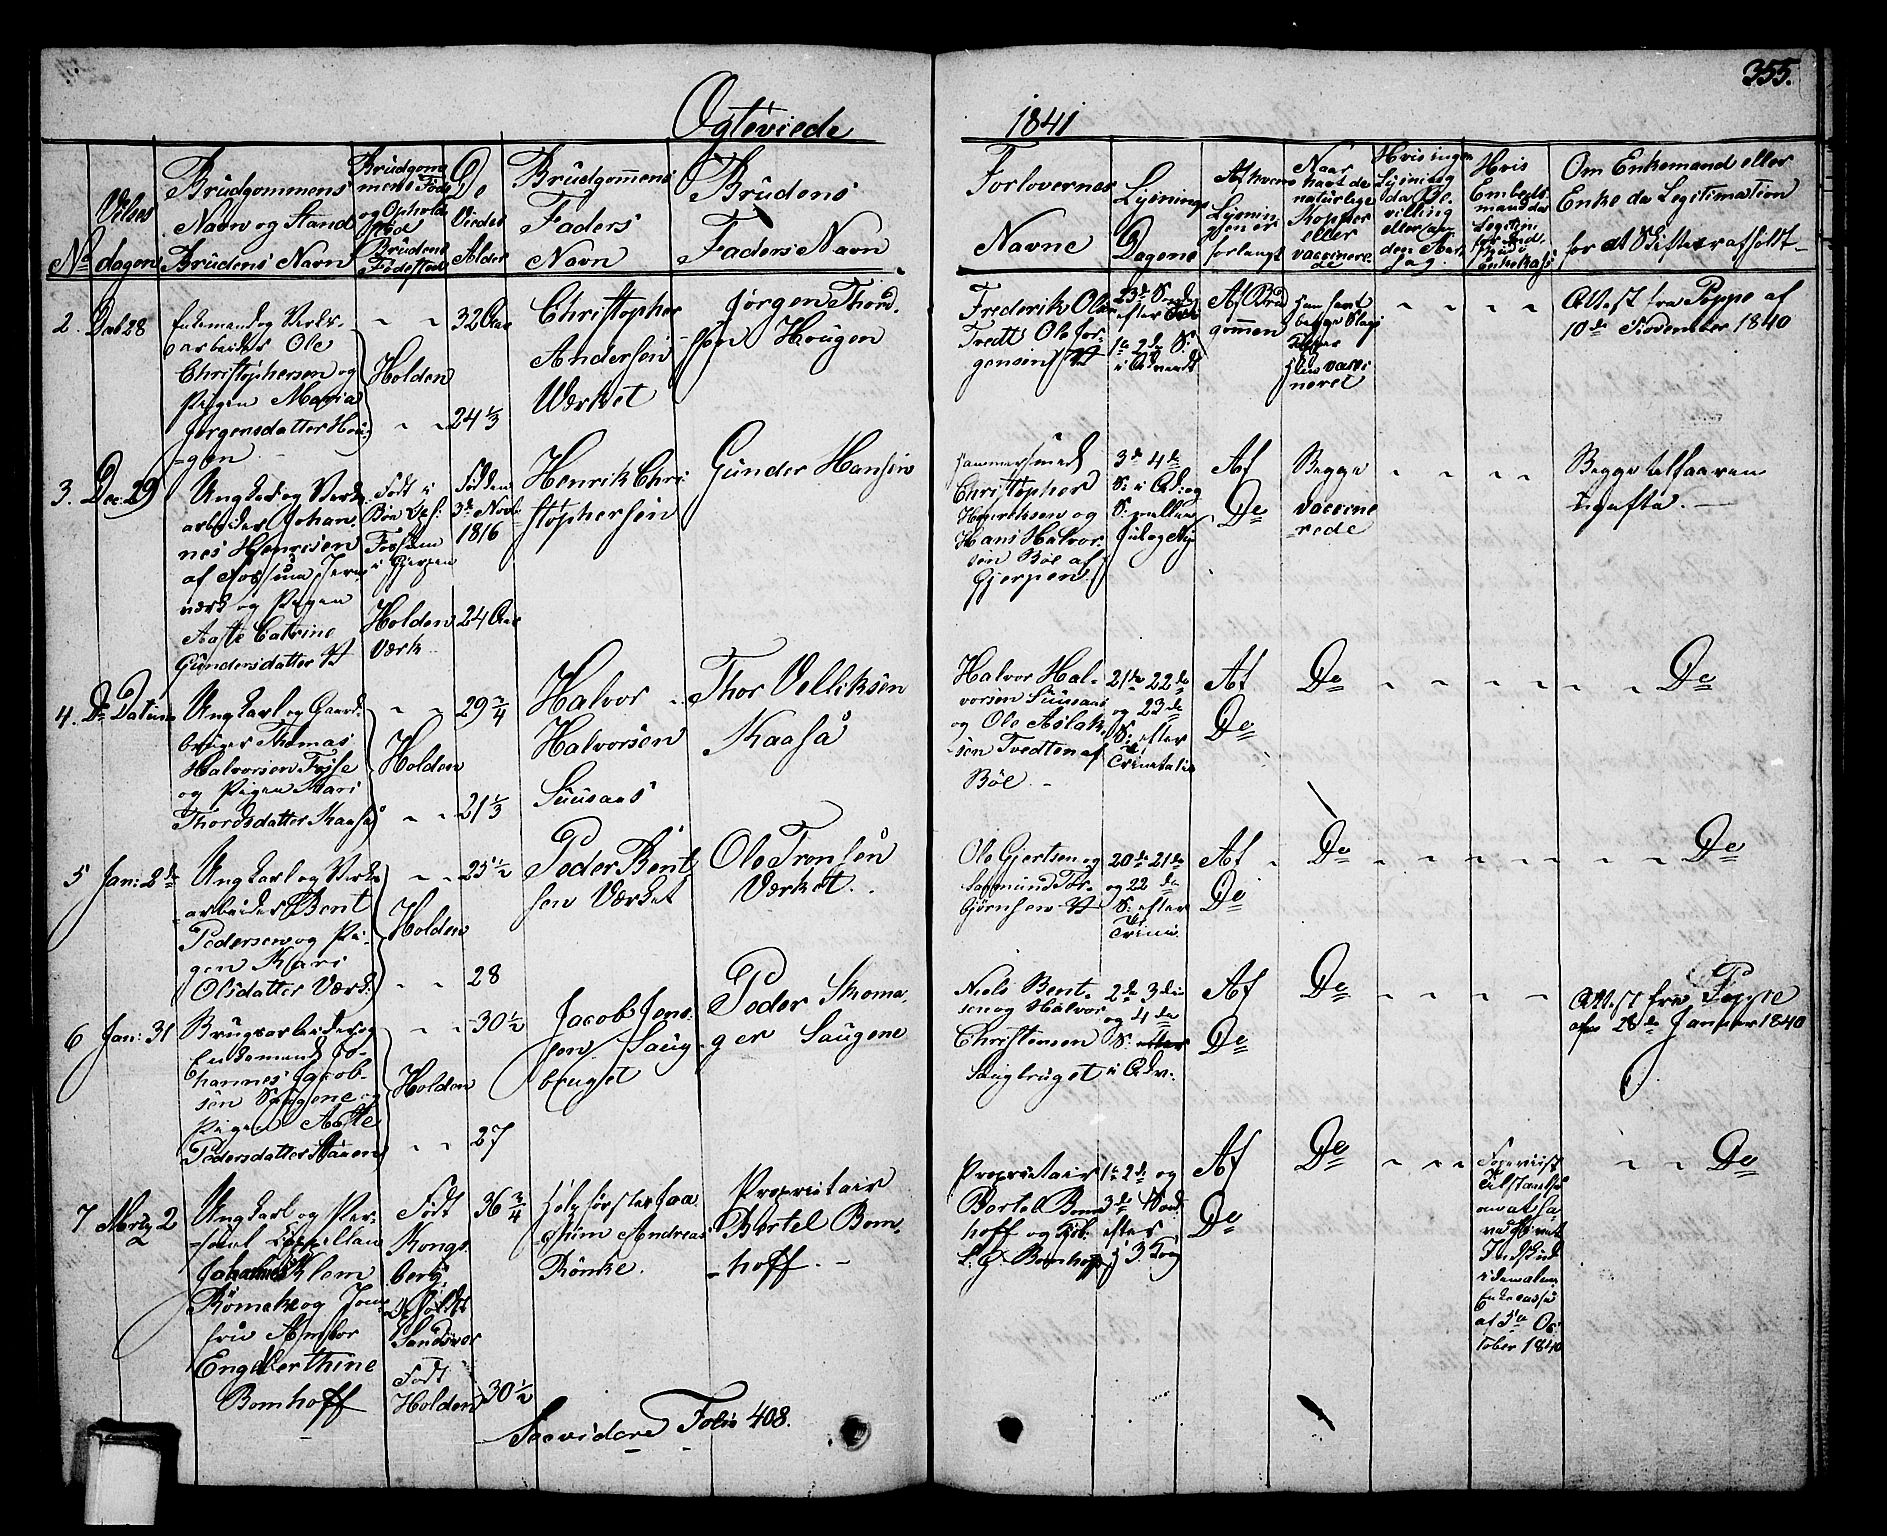 355.
Ogteviede
1841
Vilses
No dagen
Brudgommens
Navn og Stand
Brudens Navn
Brudgom
mens Føde
og Opholds
sted
Brudens
Fødested
De
Viedes
Alder
Brudgommens
Faders
Navn
Brudens
Faders Navn
Forlovernes
Navne
Lysnings
Dagene
Af hvem
Lysnin
gen er
forlangt
Naar
havt de
naturlige
Kopper
eller
vaccinere
de
Hvis ingen
Lysning
da Be
villing
eller
Hvis
Embeds
mand da
Legitim.
for Ind.
skud i
Enkekass
Om Enkemand eller
Enke da Legitimation
for at Skifte er afholdt
2. Dec 28
Enkemand og Verks-
arbeider Ole
Christophersen og
Pigen Maria
Jørgensdatter Hou
gen
Holden
32 Aar
24 1/3
Christopher
Andersen
Værket
Jørgen Thord
sen Hougen
Frederik Olsen
Tvedt Ole Jør-
gensen
23de Sønd
efter
1te 2de S:
i Advendt
Af Brud
gommen
han havt
begge Slags
Kopper
hun vacci
neret
Attest fra Poppe af
10de November 1840
3. Dec 29
Ungkarl og Verks
arbeider Johan
nes Henrisen
af Fossum Jern
værk og Pigen
Aaste Catrine
Gundersdatter V
Født i
Bøe Opf:
Fossum
i Gjerpen
Holden
Værk
Fødden
3de Novb
1816
24 Aar
Henrik Chri
stophersen
Gunder Hansen
Hammersmed
Christopher
Henriksen og
Hans Halvor
sen Bøe af
Gjerpen
3de 4de
S: i Ad: og
S: mellem
Juul og Ny
Af
De
Begge
vaccine
rede
Begge tilforn
ugifte.
4. De Datum
Ungkarl og Gaard
bruger Thomas
Halvorsen
og Pigen Kari
Thordsdatter Kaasa
Holden
29 3/4
21 1/3
Halvor
Halvorsen
Suusaas
Thor Velliksen
Kaasa
Halvor Hal-
vorsen Suusaas
og Ole Aslak
sen Tvedten af
Bøe
21de 22de
og 23de
S: efter
Trinitatis
Af
De
De
De
5 Jan: 2de
Ungkarl og Verks
arbeider Bent
Pedersen og Pi-
gen Kari
Olsdatter Værk:
Holden
25 1/2
28
Peder Bent
sen Værket
Ole Tronsen
Værket.
Ole Gjertsen og
Sammund Tor-
bjørnsen V
20de 21de
og 22de
S: efter
Trini:
Af
De
De
De
6 Jan: 31
Brugsarbeider og
Enkemand Jo-
hannes Jacob-
sen Saugene og
Pigen Aaste
Pedersdatter
Holden
30 1/2
27
Jacob Jens
sen Saug-
bruget
Peder Skoma
ger Saugene
Niels Bent-
sen og Halvor
Christensen
Saugbruget
2de 3die
og 4de
S: efter
i Adv:
Af
De
De
Attest fra Poppe
af 28de Januar 1840
7. Martz 2
Ungkarl og Per-
sonel Cappellan
Johannes Klem
Römcke og Jom
fru Amlor
Engelberthine
Bomhoff
Født
Kongs
berg,
Opholdt
Sandsvær
Født
Holden
36 3/4
30 1/2
Holtzförster Joa
chim Andreas
Rönke.
Proprietair
Bertel Bom
hoff.
Proprietair
Bertel Bom
hoff og
L. G. Bomhoff
1te 2de og
3de Sønd
efter
h: 3 Kog
Af
De
De
Foreviist
Tilstaaelse
om at ha
ve
Indskud
i den alm.
Enkecasse
af 5te Oc
tober 1840
De
See videre Folio 408.